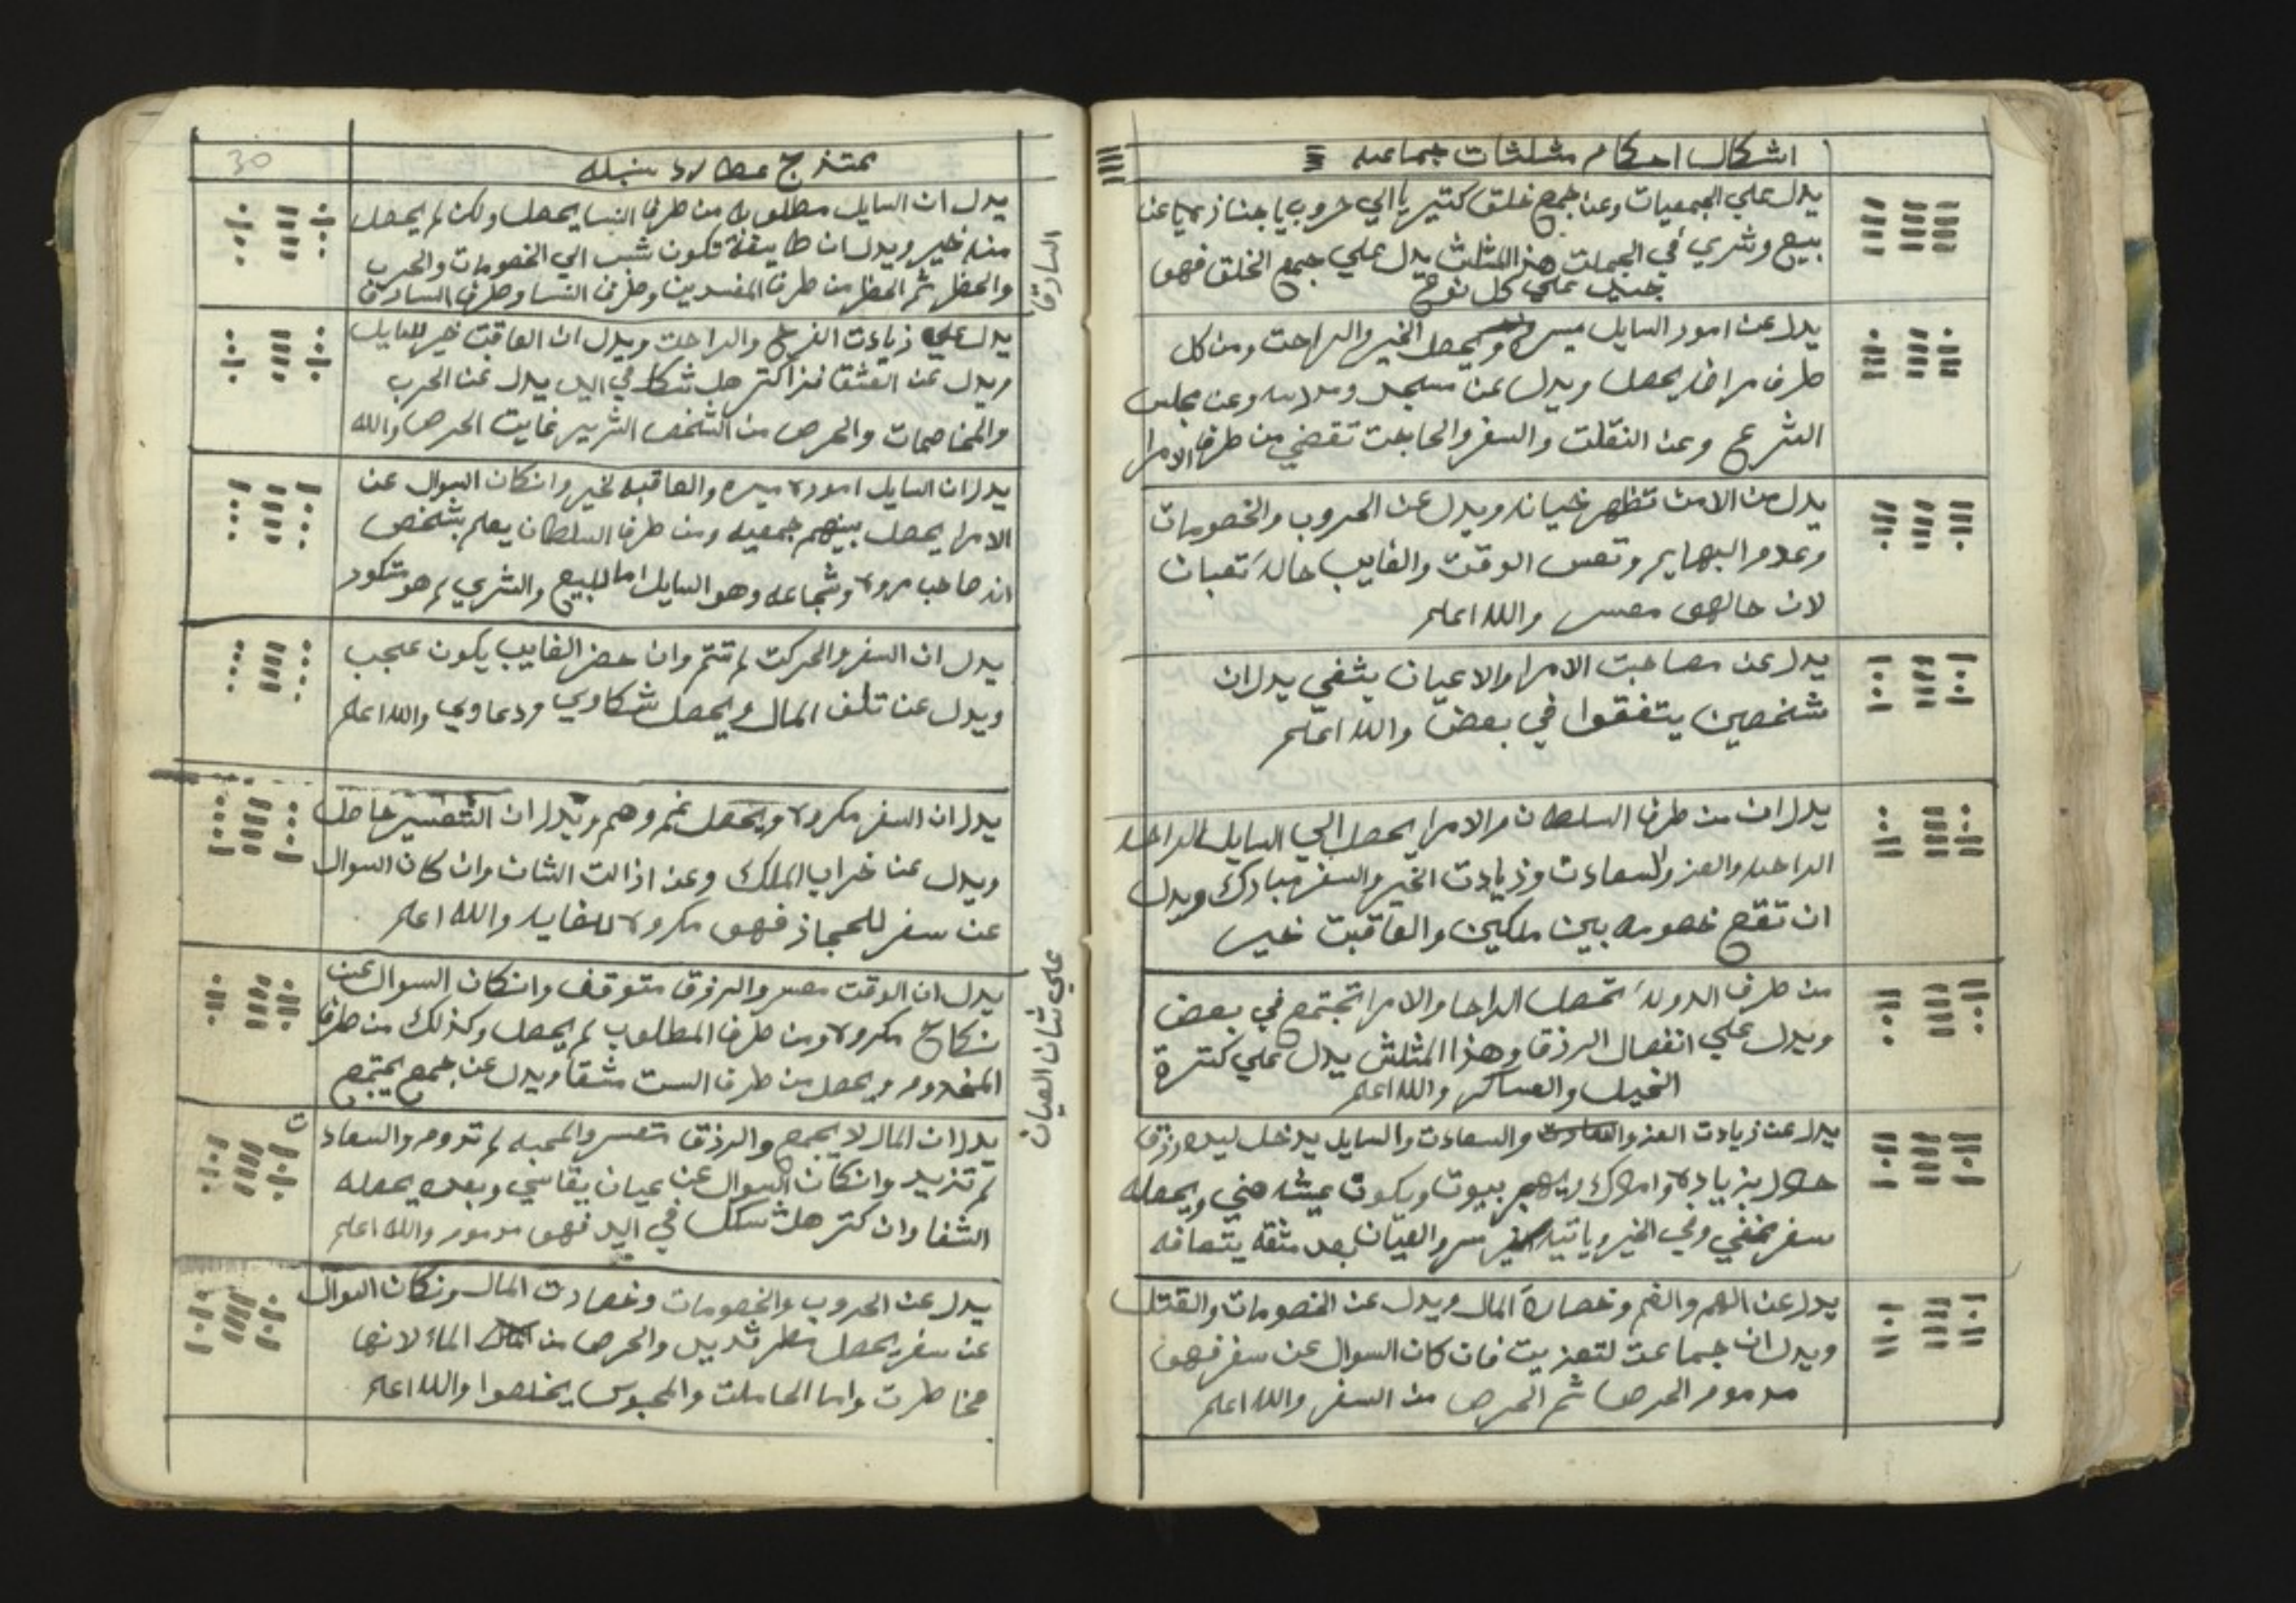 اشكال احكام مثلثات جماعه
يدل علي الجمعيات وعن جمع خلق كتير يا الي حروب يا جنازه يا عن
بيع وشري في الجملت هذا المثلث يدل علي جمع الخلق فهو
جيد علي كل نوع
يدل عن امور السايل ميسره ويحصل الخير والراحت ومن كل
طرف مراضه يحصل ويدل عن مسجد ومدرسه وعن مجلس
الشرع وعن النقلت والسفر والحاجت تقضي من طرف الامرا
يدل من الامن تظهر خيانه ويدل عن الحروب والخصومات
وعدم البهايم وتعس الوقت والغايب حاله تعبان
لان حالهو معسر والله اعلم
يدل عن مصاحبت الامرا والاعيان يشفي يدل ان
شخصين يتفقوا في بعض والله اعلم
يدل ان من طرف السلطان والامرا يحصل الي السايل الراحه
الراحه والعز والسعادت وزيادت الخير والسفر مبارك ويدل
ان تقع خصومه بين ملكين والعاقبت خير
من طرف الدوله تحصل الراحا والامرا تجتمع في بعض
ويدل علي انفصال الرزق وهذا المثلث يدل علي كترة
الخيل والعساكر والله اعلم
يدل عن زيادت العز والسعادت والسايل يدخل ليده رزق
حلال بزياده واملاك بيوت ويكون عيشه هني ويحصله
سفر مخفي وياتيه والعيان بعد مشقه يتعافه
يدل عن الهم والغم وخصارة المال ويدل عن الخصومات والقتل
ويدل ان جماعت لتعزيت فان كان السوال عن سفر فهو
مدموم الحرص ثم الحرص من السفر والله اعلم
30
يمتزج عطارد سنبله
يدل ان السايل مطلوبه من طرف النسا يحصل ولكن لم يحصل
منه خير ويدل ان طايفة تكون سبب الي الخصومات والحرب
والحظر ثم الحظر من طرف المفسدين وطرف النسا وطرف السارق
السارق
يدل علي زيادت الفرح والراحت ويدل ان العاقبت خير للسايل
ويدل عن العشق فنزا كتر هل شكل في اليد يدل عن الحرب
والمخاصمات والحرص من الشخص الشرير غايت الحرص والله
يدل ان السايل اموره ميسره والعاقبه لخير وانكان السوال عن
الامرا يحصل بينهم جمعيه ومن طرف السلطان يعلم بشخص
انه صاحب مروه وشجاعه وهو السايل اما للبيع والشري لم هو متكور
يدل ان السفر والحركت لم تتم وان حضر الغايب يكون عجب
ويدل عن تلف المال ويحصل شكاوي ودعاوي والله اعلم
يدل ان السفر مكروه ويحصل غم وهم ويدل ان التعسير حاصل
ويدل عن خراب الملك وعن ازالت الشان وان كان السوال
عن سفر للحجاز فهو مكروه للغايه والله اعلم
يدل ان الوقت معسر والرزق متوقف وانكان السوال عن
نكاح مكروه ومن طرف المطلوب لم يحصل وكذلك من طرف
المخدوم ويحصل من طرف الست مشقا ويدل عن جمع يجتمع
علي شان العيان
يدل ان المال لا يجمع والرزق متعسر والمحبه لم تدوم والسعادت
لم تزيد وانكان السوال عن عيان يقاسي وبعده يحصله
الشفا وان كتر هل شكل في اليد فهو مدموم والله اعلم
يدل عن الحروب والخصومات وخصارت المال ونكان السوال
عن سفر يحصل مطر شديد والحرص من الماء لانها
مخاطرت واما الحاملت والمحبوس يخلصوا والله اعلم